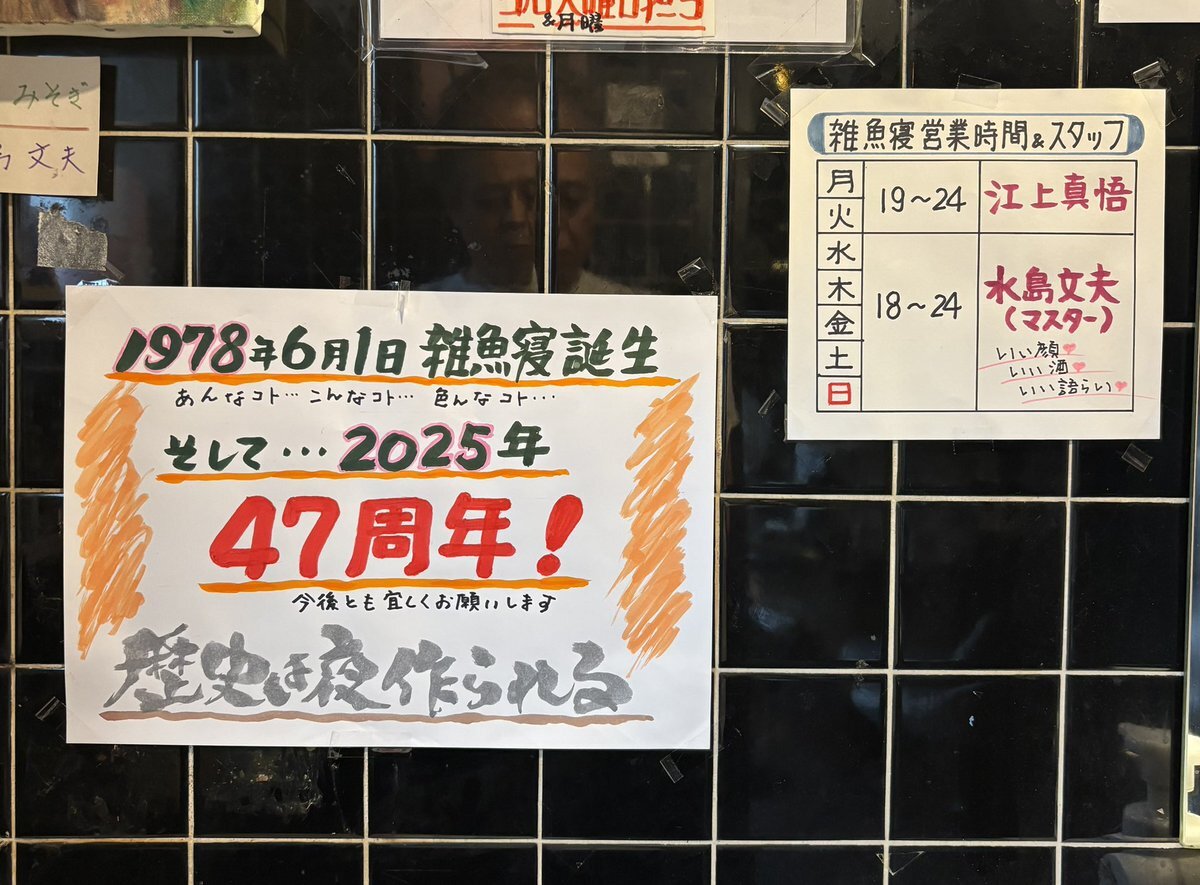 &月曜
みそぎ
文夫
雑魚寝営業時間&スタッフ
月
火
19〜24
江上真悟
水
木
金
土
日
18〜24
水島文夫
(マスター)
いい顔
いい酒
いい語らい
1978年6月1日 雑魚寝誕生
あんなコト… こんなコト… 色んなコト…
そして…2025年
47周年!
今後とも宜しくお願いします
歴史は夜作られる